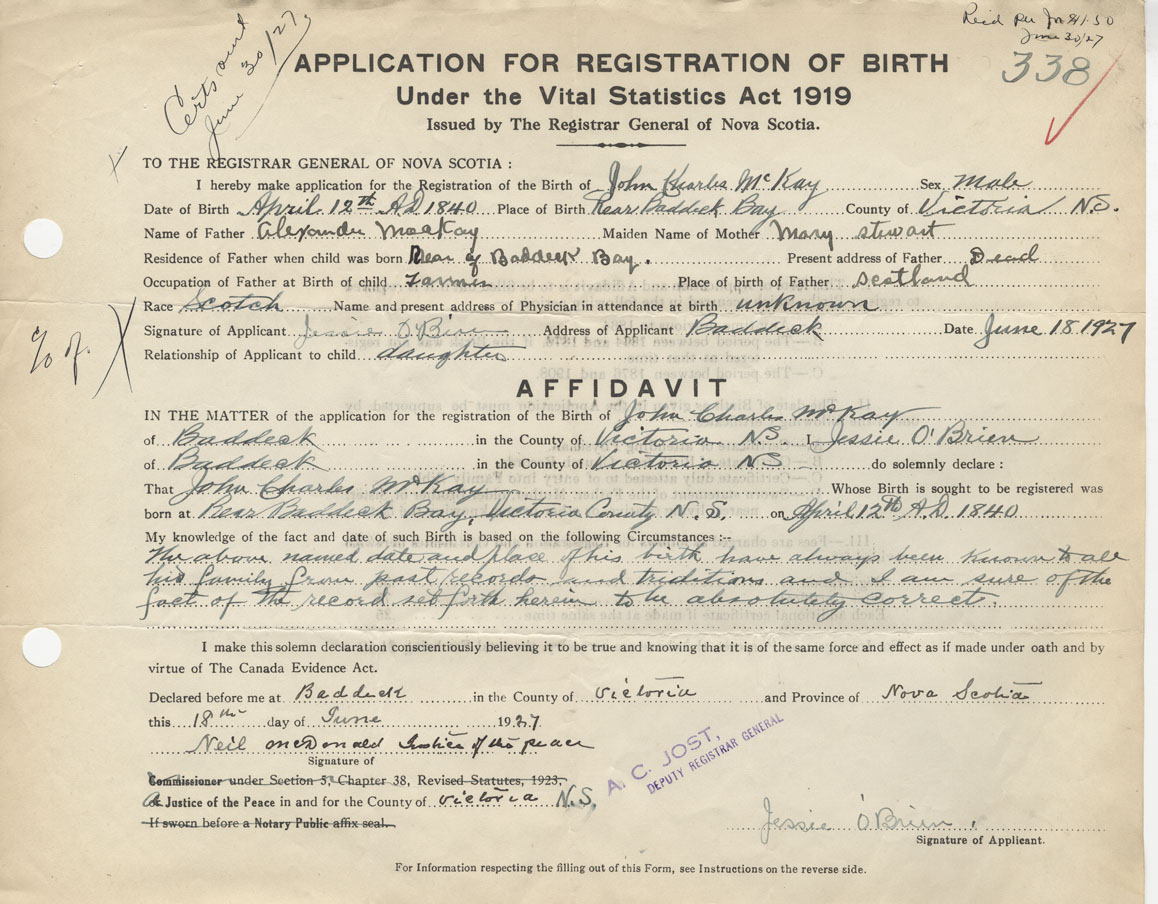 Certs ound
June 30/27
Recd per Jn $1.50
June 30/27
338
APPLICATION FOR REGISTRATION OF BIRTH
Under the Vital Statistics Act 1919
Issued by The Registrar General of Nova Scotia.
TO THE REGISTRAR GENERAL OF NOVA SCOTIA :
I hereby make application for the Registration of the Birth of John Charles McKay Sex Male
Date of Birth April 12th A.D 1840 Place of Birth Rear Baddeck Bay County of Victoria N.S.
Name of Father Alexander MacKay Maiden Name of Mother Mary Stewart
Residence of Father when child was born Rear of Baddeck Bay. Present address of Father Dead
Occupation of Father at Birth of child Farmer Place of birth of Father Scotland
Race Scotch Name and present address of Physician in attendance at birth unknown
Signature of Applicant Jessie O'Brien Address of Applicant Baddeck Date June 18 1927
Relationship of Applicant to child daughter
AFFIDAVIT
IN THE MATTER of the application for the registration of the Birth of John Charles McKay
of Baddeck in the County of Victoria N.S. I Jessie O'Brien
of Baddeck in the County of Victoria N S do solemnly declare :
That John Charles McKay Whose Birth is sought to be registered was
born at Rear Baddeck Bay, Victoria County N.S. on April 12th A.D. 1840
My knowledge of the fact and date of such Birth is based on the following Circumstances :--
The above named date and place of his birth have always been known to all
his family from past records and triditions and I am sure of the
fact of the record set forth herein to be absolutely correct.
I make this solemn declaration conscientiously believing it to be true and knowing that it is of the same force and effect as if made under oath and by
virtue of The Canada Evidence Act.
Declared before me at Baddeck in the County of Victoria and Province of Nova Scotia
this 18th day of June 1927
Neil McDonald Justice of the peace
Signature of
Commissioner under Section 5, Chapter 38, Revised Statutes, 1923,
A Justice of the Peace in and for the County of Victoria N.S.
If sworn before a Notary Public affix seal.
A. C. JOST,
DEPUTY REGISTRAR GENERAL
Jessie O'Brien.
Signature of Applicant.
For Information respecting the filling out of this Form, see Instructions on the reverse side.